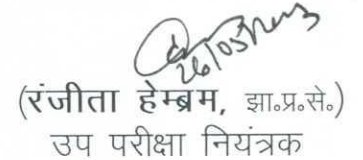 26/05/2023
(रंजीता हेम्ब्रम, झा॰प्र॰से॰)
उप परीक्षा नियंत्रक